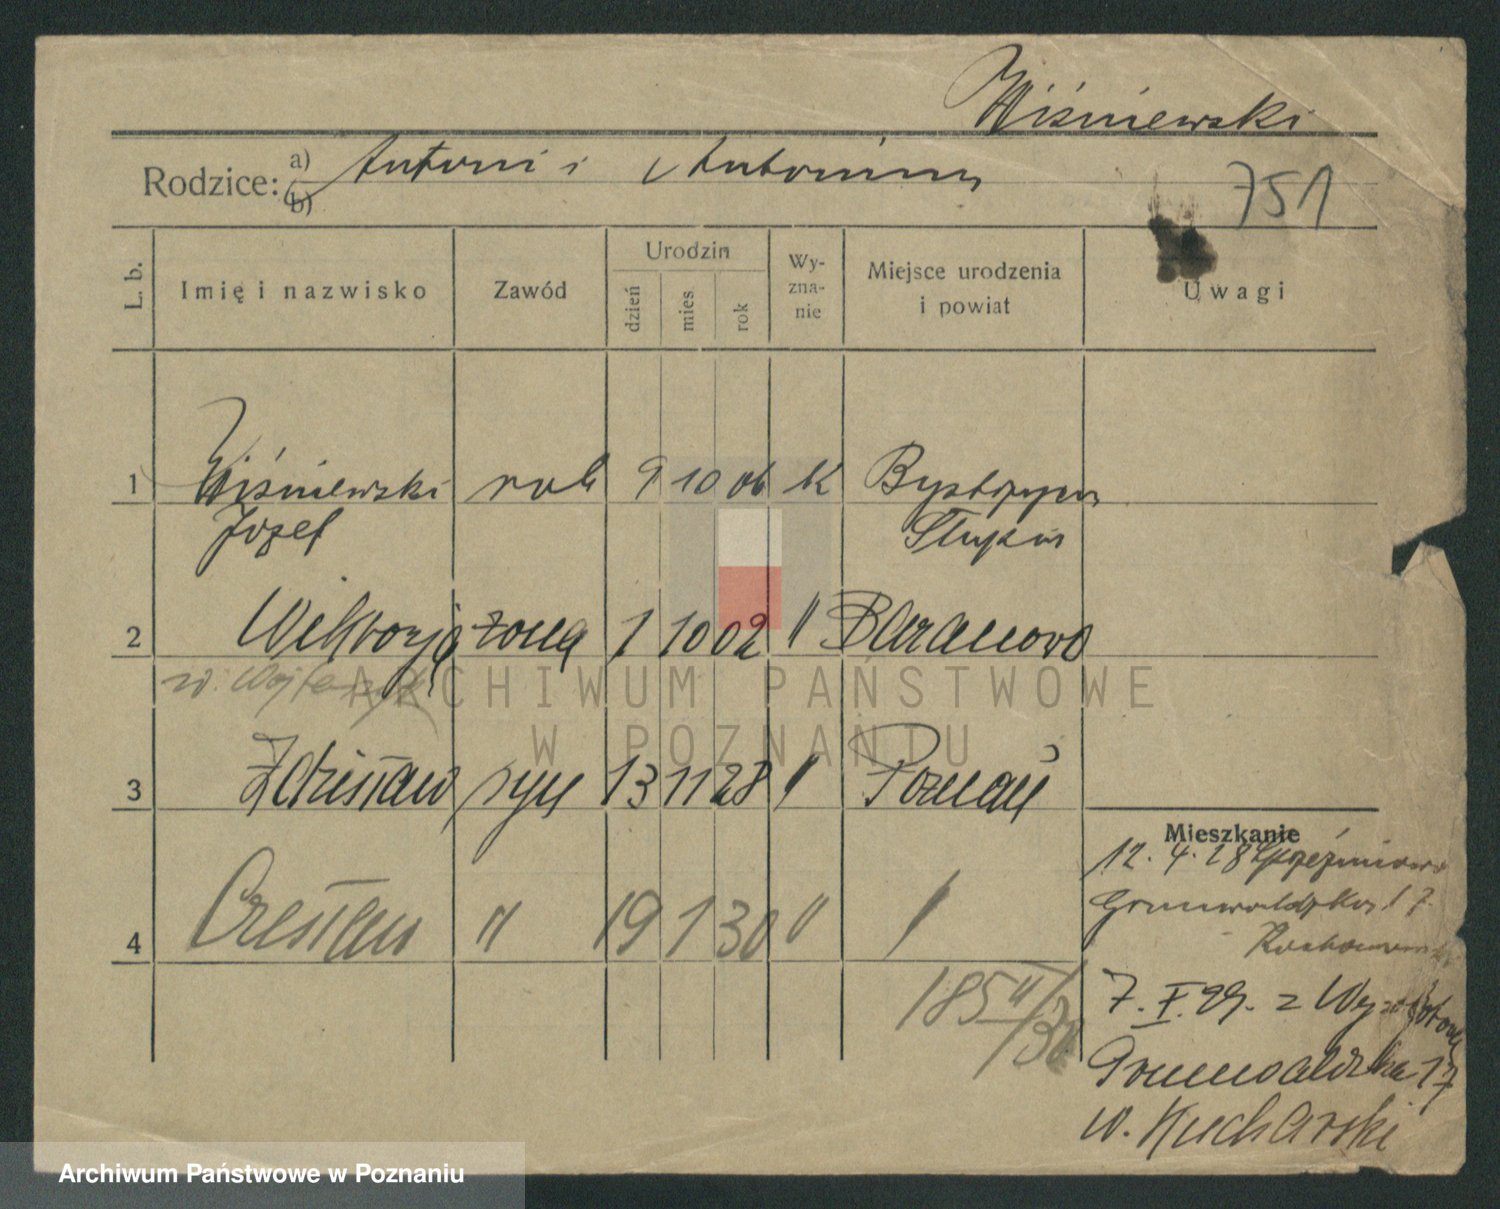 Wiśniewski
Rodzice: a) Antoni i Antonina
b)
751
L. b.
Imię i nazwisko
Zawód
Urodzin
dzień
mies
rok
Wy-
zna-
nie
Miejsce urodzenia
i powiat
Uwagi
1 Wiśniewski rob 9 10 06 K Bystrzyca
Józef Słupca
2 Wiktorja żona 1 10 02 " Baranowo
3 Zdzisław syn 13 11 28 " Poznań
4 Czesław " 19 1 30 "
185 II/30
Mieszkanie
12. 4. 28
Grunwaldzka 17
7. X. 29. z
Grunwaldzka 17
w. Kucharski
ARCHIWUM PAŃSTWOWE
W POZNANIU
Archiwum Państwowe w Poznaniu